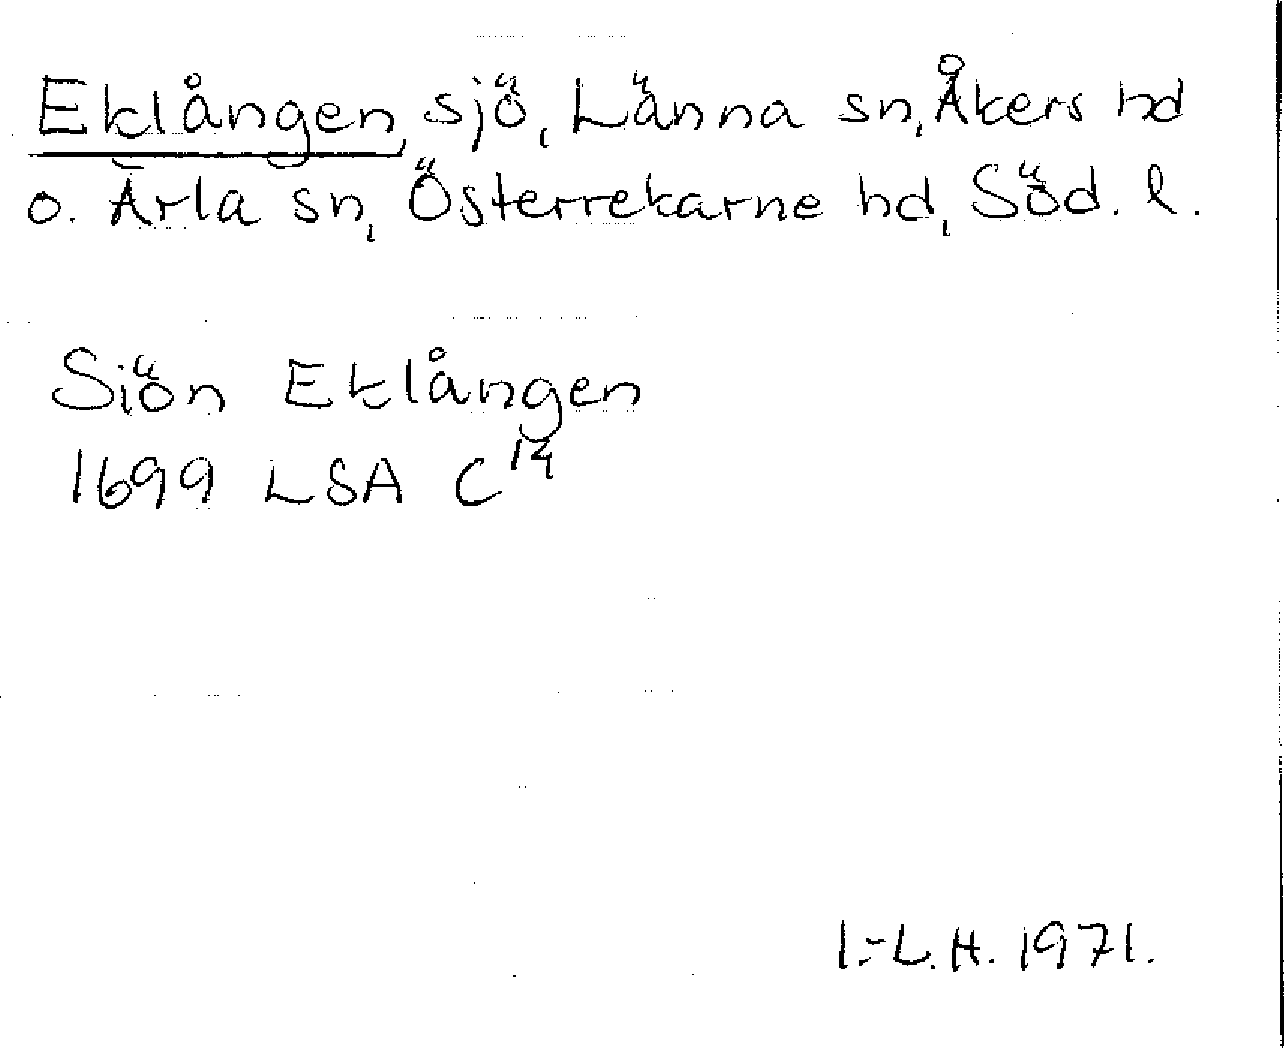 Eklången, sjö, Länna sn, Åkers hd
o. Ärla sn, Österrekarne hd, Söd. l.
Siön Eklången
1699 LSA C¹⁴
I.-L.H. 1971.